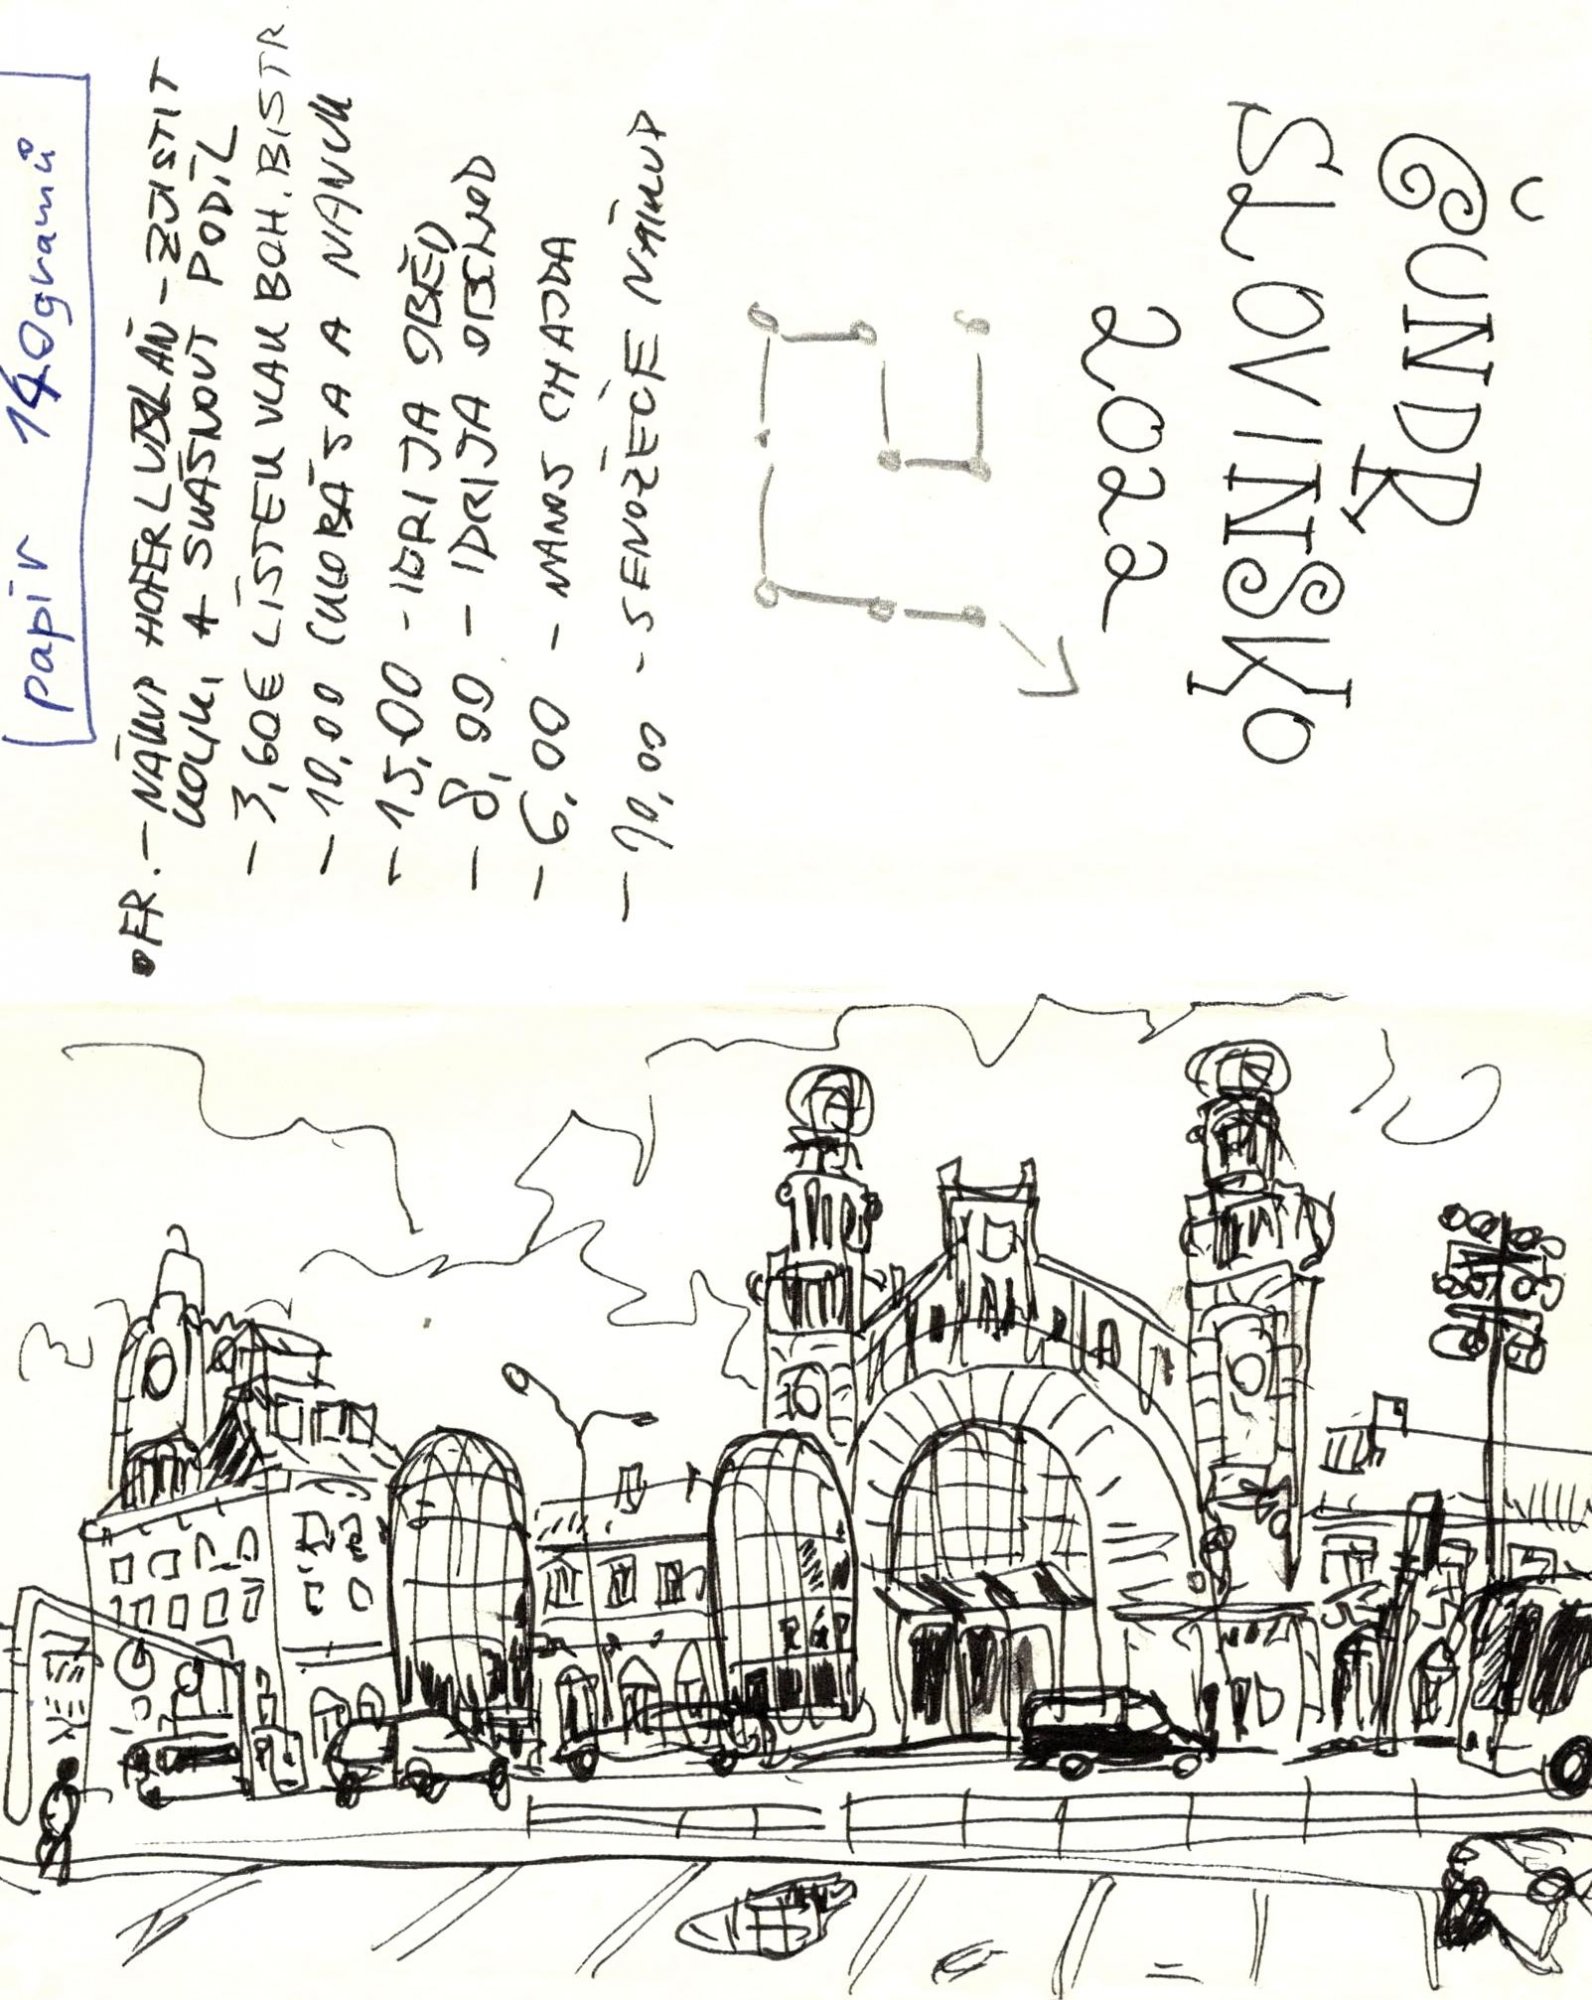 papír 140gramů
FR. - NÁKUP HOFER LUBLAŇ - ZJISTIT
KOLIK, A SHÁSNOUT PODÍL
- 3,60€ LÍSTEK VLAK BOH. BISTR.
- 10,00 CKLOBÁSA A NANUK
- 15,00 - IDRIJA OBĚD
- 8,99 - IDRIJA OBCHOD
- 6,00 - NANOS CHAJDA
- 10,00 - SENOŽEČE NÁKUP
ČUNDR
SLOVINSKO
2022